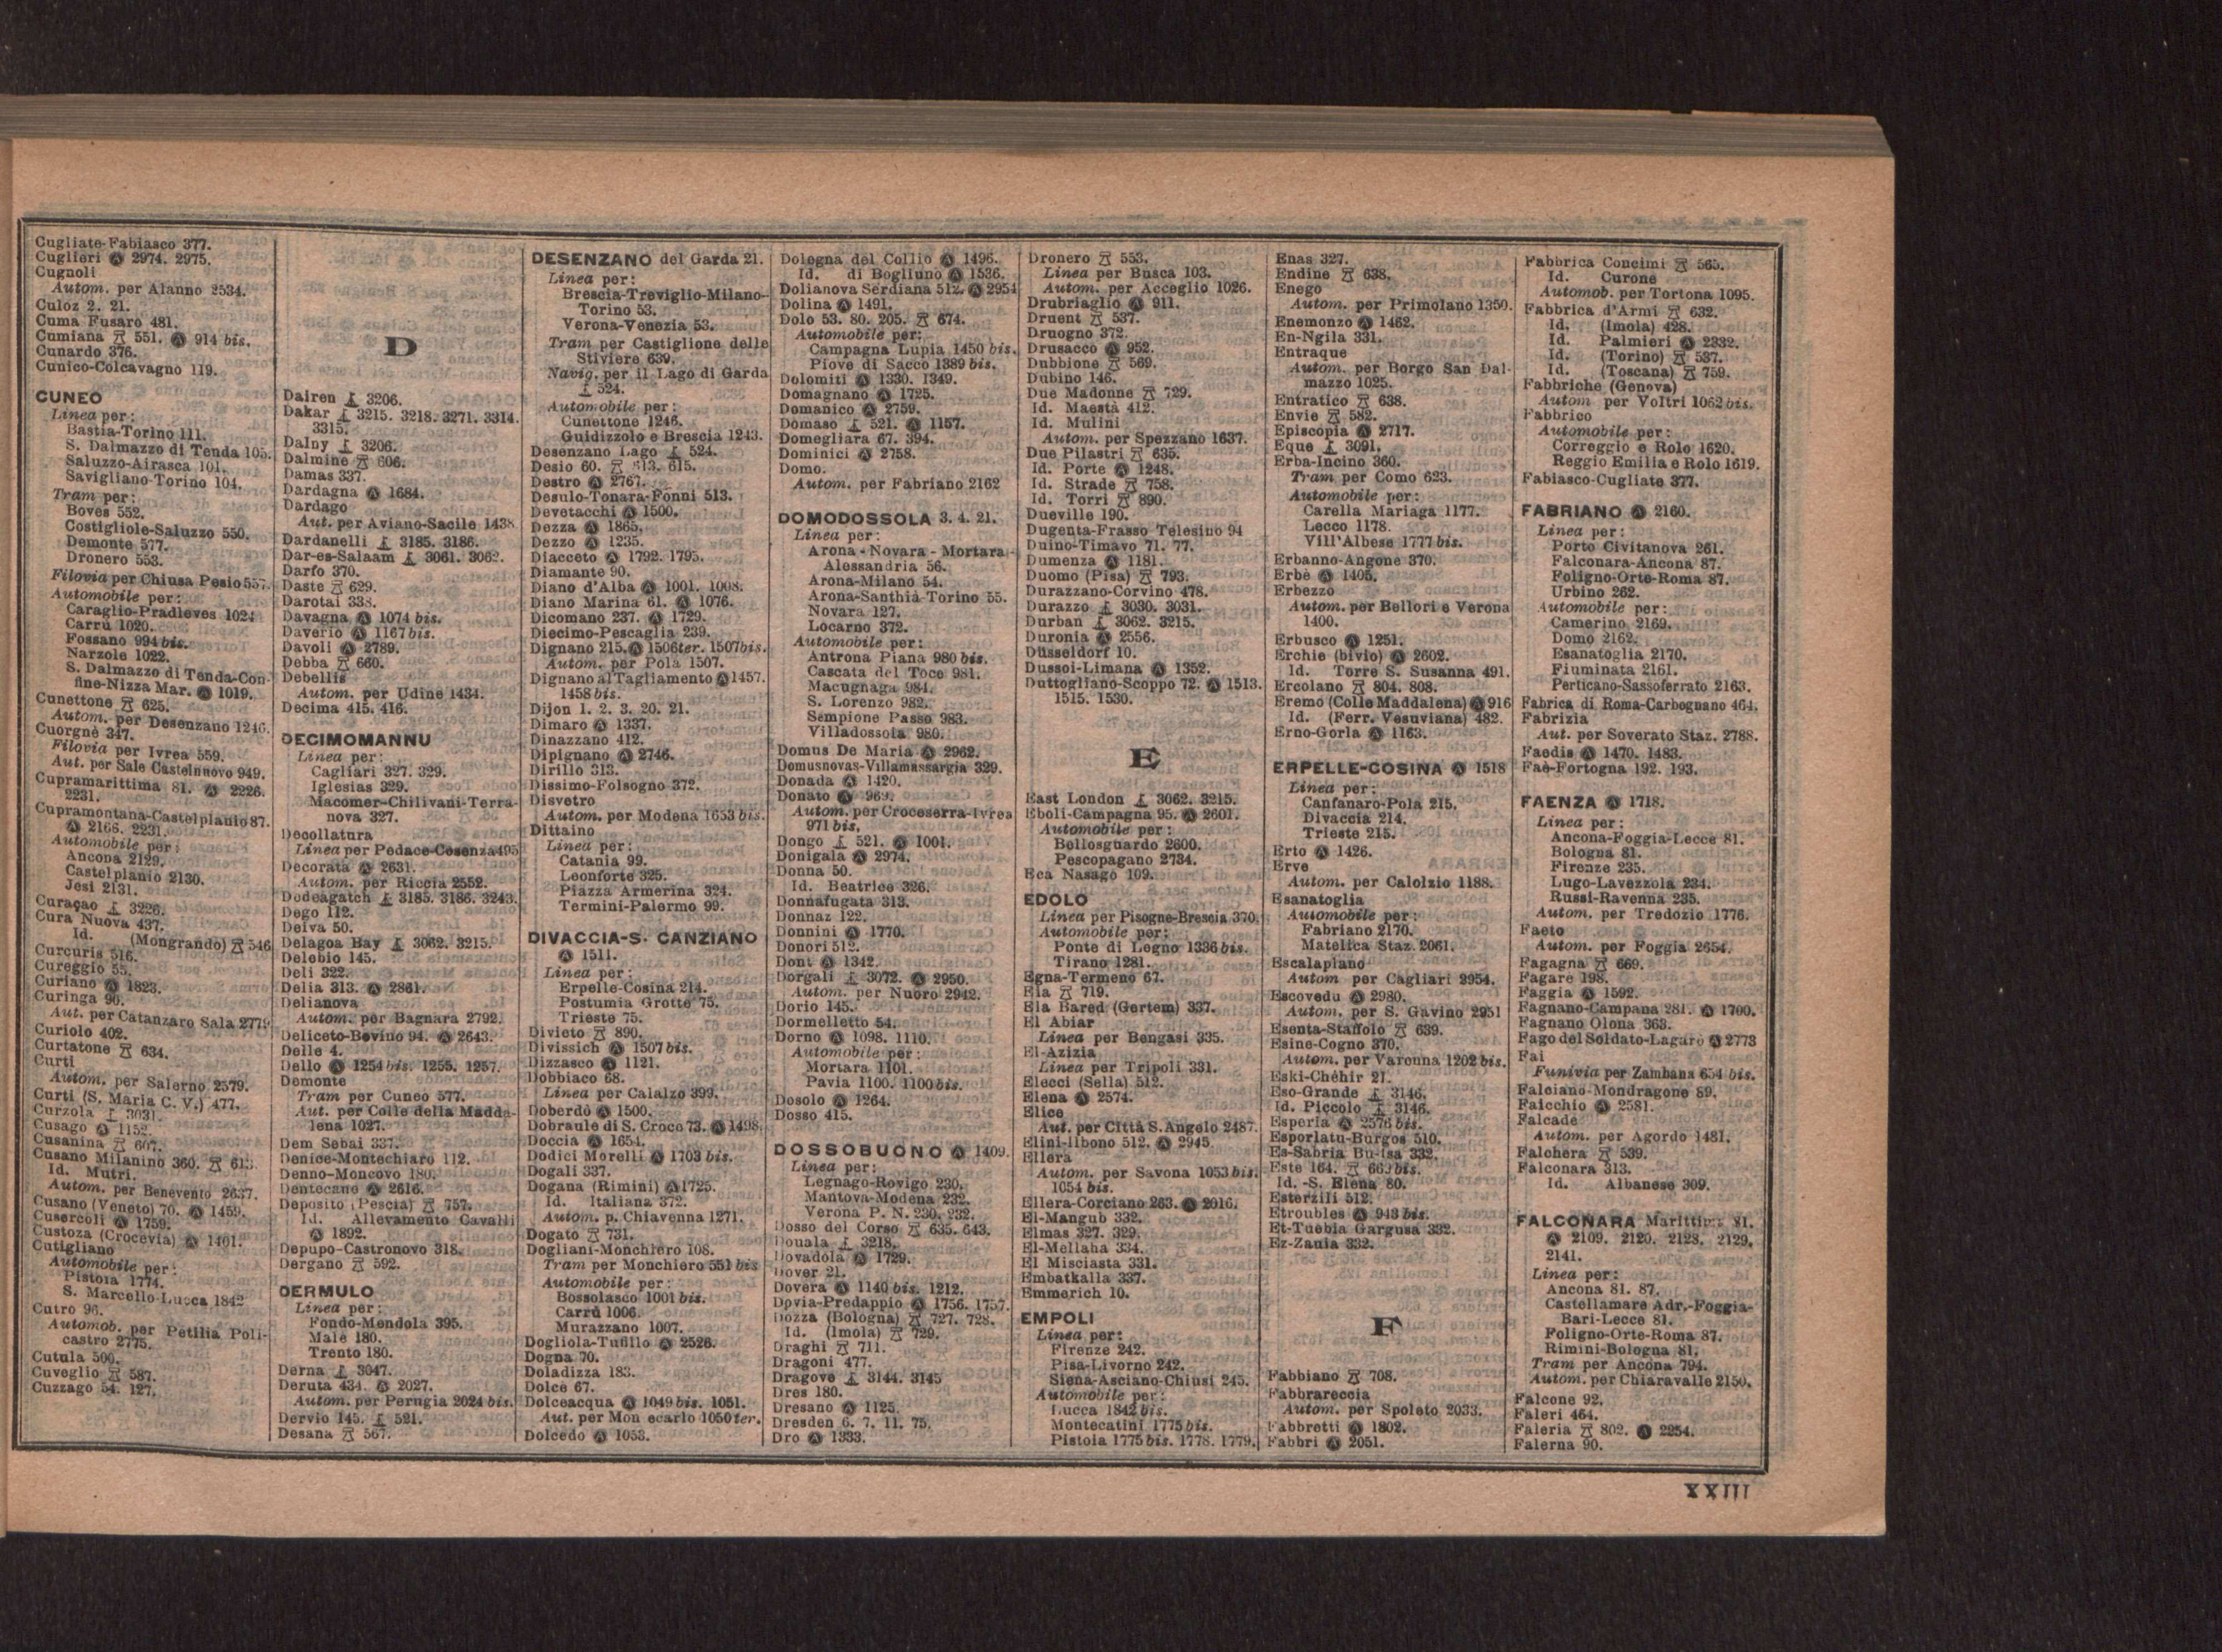 Cugliate-Fabiasco 377.
Cuglieri Ⓐ 2974. 2975.
Cugnoli
Autom. per Alanno 2534.
Culoz 2. 21.
Cuma Fusaro 481.
Cumiana 551. Ⓐ 914 bis.
Cunardo 376.
Cunico-Colcavagno 119.
CUNEO
Linea per:
Bastia-Torino 111.
S. Dalmazzo di Tenda 105.
Saluzzo-Airasca 101.
Savigliano-Torino 104.
Tram per:
Boves 552.
Costigliole-Saluzzo 550.
Demonte 577.
Dronero 553.
Filovia per Chiusa Pesio 557.
Automobile per:
Caraglio-Pradleves 1024
Carrù 1020.
Fossano 994 bis.
Narzole 1022.
S. Dalmazzo di Tenda-Con-
fine-Nizza Mar. Ⓐ 1019.
Cunettone 625.
Autom. per Desenzano 1246.
Cuorgnè 347.
Filovia per Ivrea 559.
Aut. per Sale Castelnuovo 949.
Cupramarittima 81. Ⓐ 2226.
2231.
Cupramontana-Castelplanio 87.
Ⓐ 2166. 2231.
Automobile per:
Ancona 2129.
Castelplanio 2130.
Jesi 2131.
Curaçao 3226.
Cura Nuova 437.
Id. (Mongrando) 546
Curcuris 516.
Cureggio 55.
Curiano Ⓐ 1823.
Curinga 90.
Aut. per Catanzaro Sala 2779
Curiolo 402.
Curtatone 634.
Curti
Autom. per Salerno 2579.
Curti (S. Maria C. V.) 477.
Curzola 3031.
Cusago Ⓐ 1152.
Cusanina 607.
Cusano Milanino 360. 613.
Id. Mutri.
Autom. per Benevento 2637.
Cusano (Veneto) 70. Ⓐ 1459.
Cusercoli Ⓐ 1759.
Custoza (Crocevia) Ⓐ 1401.
Cutigliano
Automobile per:
Pistoia 1774.
S. Marcello-Lucca 1842
Cutro 96.
Automob. per Petilia Poli-
castro 2775.
Cutula 500.
Cuveglio 587.
Cuzzago 54. 127.
D
Dairen 3206.
Dakar 3215. 3218. 3271. 3314.
3315.
Dalny 3206.
Dalmine 606.
Damas 337.
Dardagna Ⓐ 1684.
Dardago
Aut. per Aviano-Sacile 1438
Dardanelli 3185. 3186.
Dar-es-Salaam 3061. 3062.
Darfo 370.
Daste 629.
Darotai 333.
Davagna Ⓐ 1074 bis.
Daverio Ⓐ 1167 bis.
Davoli Ⓐ 2789.
Debba 660.
Debellis
Autom. per Udine 1434.
Decima 415. 416.
DECIMOMANNU
Linea per:
Cagliari 327. 329.
Iglesias 329.
Macomer-Chilivani-Terra-
nova 327.
Decollatura
Linea per Pedace-Cosenza 495
Decorata Ⓐ 2631.
Autom. per Riccia 2552.
Dedeagatch 3185. 3186. 3243.
Dego 112.
Deiva 50.
Delagoa Bay 3062. 3215.
Delebio 145.
Deli 322.
Delia 313. Ⓐ 2861.
Delianova
Autom. per Bagnara 2792.
Deliceto-Bovino 94. Ⓐ 2643.
Delle 4.
Dello Ⓐ 1254 bis. 1255. 1257.
Demonte
Tram per Cuneo 577.
Aut. per Colle della Madda-
lena 1027.
Dem Sebai 337.
Denice-Montechiaro 112.
Denno-Moncovo 180.
Dentecane Ⓐ 2616.
Deposito (Pescia) 757.
Id. Allevamento Cavalli
Ⓐ 1892.
Depupo-Castronovo 318.
Dergano 592.
DERMULO
Linea per:
Fondo-Mendola 395.
Malè 180.
Trento 180.
Derna 3047.
Deruta 434. Ⓐ 2027.
Autom. per Perugia 2024 bis.
Dervio 145. 521.
Desana 567.
DESENZANO del Garda 21.
Linea per:
Brescia-Treviglio-Milano-
Torino 53.
Verona-Venezia 53.
Tram per Castiglione delle
Stiviere 639.
Navig. per il Lago di Garda
524.
Automobile per:
Cunettone 1246.
Guidizzolo e Brescia 1243.
Desenzano Lago 524.
Desio 60. 613. 615.
Destro Ⓐ 2767.
Desulo-Tonara-Fonni 513.
Devetacchi Ⓐ 1500.
Dezza Ⓐ 1865.
Dezzo Ⓐ 1235.
Diacceto Ⓐ 1792. 1795.
Diamante 90.
Diano d'Alba Ⓐ 1001. 1008.
Diano Marina 61. Ⓐ 1076.
Dicomano 237. Ⓐ 1729.
Diecimo-Pescaglia 239.
Dignano 215. Ⓐ 1506 ter. 1507 bis.
Autom. per Pola 1507.
Dignano al Tagliamento Ⓐ 1457.
1458 bis.
Dijon 1. 2. 3. 20. 21.
Dimaro Ⓐ 1337.
Dinazzano 412.
Dipignano Ⓐ 2746.
Dirillo 313.
Dissimo-Folsogno 372.
Disvetro
Autom. per Modena 1653 bis.
Dittaino
Linea per:
Catania 99.
Leonforte 325.
Piazza Armerina 324.
Termini-Palermo 99.
DIVACCIA-S. CANZIANO
Ⓐ 1511.
Linea per:
Erpelle-Cosina 214.
Postumia Grotte 75.
Trieste 75.
Divieto 890.
Divissich Ⓐ 1507 bis.
Dizzasco Ⓐ 1121.
Dobbiaco 68.
Linea per Calalzo 399.
Doberdò Ⓐ 1500.
Dobraule di S. Croce 73. Ⓐ 1498.
Doccia Ⓐ 1654.
Dodici Morelli Ⓐ 1703 bis.
Dogali 337.
Dogana (Rimini) Ⓐ 1725.
Id. Italiana 372.
Autom. p. Chiavenna 1271.
Dogato 731.
Dogliani-Monchiero 108.
Tram per Monchiero 551 bis
Automobile per:
Bossolasco 1001 bis.
Carrù 1006.
Murazzano 1007.
Dogliola-Tufillo Ⓐ 2526.
Dogna 70.
Doladizza 183.
Dolcè 67.
Dolceacqua Ⓐ 1049 bis. 1051.
Aut. per Mon ecarlo 1050 ter.
Dolcedo Ⓐ 1053.
Dolegna del Collio Ⓐ 1496.
Id. di Bogliuno Ⓐ 1536.
Dolianova Serdiana 512. Ⓐ 2954
Dolina Ⓐ 1491.
Dolo 53. 80. 205. 674.
Automobile per:
Campagna Lupia 1450 bis.
Piove di Sacco 1389 bis.
Dolomiti Ⓐ 1330. 1349.
Domagnano Ⓐ 1725.
Domanico Ⓐ 2759.
Domaso 521. Ⓐ 1157.
Domegliara 67. 394.
Dominici Ⓐ 2758.
Domo.
Autom. per Fabriano 2162
DOMODOSSOLA 3. 4. 21.
Linea per:
Arona - Novara - Mortara -
Alessandria 56.
Arona-Milano 54.
Arona-Santhià-Torino 55.
Novara 127.
Locarno 372.
Automobile per:
Antrona Piana 980 bis.
Cascata del Toce 981.
Macugnaga 984.
S. Lorenzo 982.
Sempione Passo 983.
Villadossola 980.
Domus De Maria Ⓐ 2962.
Domusnovas-Villamassargia 329.
Donada Ⓐ 1420.
Donato Ⓐ 969.
Autom. per Croceserra-Ivrea
971 bis.
Dongo 521. Ⓐ 1001.
Donigala Ⓐ 2974.
Donna 50.
Id. Beatrice 326.
Donnafugata 313.
Donnaz 122.
Donnini Ⓐ 1770.
Donori 512.
Dont Ⓐ 1342.
Dorgali 3072. Ⓐ 2950.
Autom. per Nuoro 2942.
Dorio 145.
Dormelletto 54.
Dorno Ⓐ 1098. 1110.
Automobile per:
Mortara 1101.
Pavia 1100. 1100 bis.
Dosolo Ⓐ 1264.
Dosso 415.
DOSSOBUONO Ⓐ 1409.
Linea per:
Legnago-Rovigo 230.
Mantova-Modena 232.
Verona P. N. 230. 232.
Dosso del Corso 635. 643.
Douala 3218.
Dovadola Ⓐ 1729.
Dover 21.
Dovera Ⓐ 1140 bis. 1212.
Dovia-Predappio Ⓐ 1756. 1757.
Dozza (Bologna) 727. 728.
Id. (Imola) 729.
Draghi 711.
Dragoni 477.
Dragove 3144. 3145
Dres 180.
Dresano Ⓐ 1125
Dresden 6. 7. 11. 75.
Dro Ⓐ 1333.
Dronero 553.
Linea per Busca 103.
Autom. per Acceglio 1026.
Drubiaglio Ⓐ 911.
Druent 537.
Druogno 372.
Drusacco Ⓐ 952.
Dubbione 569.
Dubino 146.
Due Madonne 729.
Id. Maestà 412.
Id. Mulini
Autom. per Spezzano 1637.
Due Pilastri 635.
Id. Porte Ⓐ 1248.
Id. Strade 758.
Id. Torri 890.
Dueville 190.
Dugenta-Frasso Telesino 94
Duino-Timavo 71. 77.
Dumenza Ⓐ 1181.
Duomo (Pisa) 793.
Durazzano-Corvino 478.
Durazzo 3030. 3031.
Durban 3062. 3215.
Duronia Ⓐ 2556.
Düsseldorf 10.
Dussoi-Limana Ⓐ 1352.
Duttogliano-Scoppo 72. Ⓐ 1513.
1515. 1530.
E
East London 3062. 3215.
Eboli-Campagna 95. Ⓐ 2601.
Automobile per:
Bellosguardo 2600.
Pescopagano 2734.
Eca Nasagò 109.
EDOLO
Linea per Pisogne-Brescia 370.
Automobile per:
Ponte di Legno 1336 bis.
Tirano 1281.
Egna-Termeno 67.
Eia 719.
Ela Bared (Gertem) 337.
El Abiar
Linea per Bengasi 335.
El-Azizia
Linea per Tripoli 331.
Elecci (Sella) 512.
Elena Ⓐ 2574.
Elice
Aut. per Città S. Angelo 2487.
Elini-Ilbono 512. Ⓐ 2945.
Ellera
Autom. per Savona 1053 bis.
1054 bis.
Ellera-Corciano 263. Ⓐ 2016.
El-Mangub 332.
Elmas 327. 329.
El-Mellaha 334.
El Misciasta 331.
Embatkalla 337.
Emmerich 10.
EMPOLI
Linea per:
Firenze 242.
Pisa-Livorno 242.
Siena-Asciano-Chiusi 245.
Automobile per:
Lucca 1842 bis.
Montecatini 1775 bis.
Pistoia 1775 bis. 1778. 1779.
Enas 327.
Endine 638.
Enego
Autom. per Primolano 1350.
Enemonzo Ⓐ 1462.
En-Ngila 331.
Entraque
Autom. per Borgo San Dal-
mazzo 1025.
Entratico 638.
Envie 582.
Episcopia Ⓐ 2717.
Eque 3091.
Erba-Incino 360.
Tram per Como 623.
Automobile per:
Carella Mariaga 1177.
Lecco 1178.
Vill'Albese 1777 bis.
Erbanno-Angone 370.
Erbè Ⓐ 1405.
Erbezzo
Autom. per Bellori e Verona
1400.
Erbusco Ⓐ 1251.
Erchie (bivio) Ⓐ 2602.
Id. Torre S. Susanna 491.
Ercolano 804. 808.
Eremo (Colle Maddalena) Ⓐ 916
Id. (Ferr. Vesuviana) 482.
Erno-Gorla Ⓐ 1163.
ERPELLE-COSINA Ⓐ 1518
Linea per:
Canfanaro-Pola 215.
Divaccia 214.
Trieste 215.
Erto Ⓐ 1426.
Erve
Autom. per Calolzio 1188.
Esanatoglia
Automobile per:
Fabriano 2170.
Matelica Staz. 2061.
Escalaplano
Autom per Cagliari 2954.
Escovedu Ⓐ 2980.
Autom. per S. Gavino 2951
Esenta-Staffolo 639.
Esine-Cogno 370.
Autom. per Varenna 1202 bis.
Eski-Chéhir 21.
Eso-Grande 3146.
Id. Piccolo 3146.
Esperia Ⓐ 2576 bis.
Esporlatu-Burgos 510.
Es-Sabria Bu-Isa 332.
Este 164. 669 bis.
Id. -S. Elena 80.
Esterzili 512.
Etroubles Ⓐ 943 bis.
Et-Tuebia Gargusa 332.
Ez-Zauia 332.
F
Fabbiano 708.
Fabbrareccia
Autom. per Spoleto 2033.
Fabbretti Ⓐ 1802.
Fabbri Ⓐ 2051.
Fabbrica Concimi 565.
Id. Curone
Automob. per Tortona 1095.
Fabbrica d'Armi 632.
Id. (Imola) 428.
Id. Palmieri Ⓐ 2332.
Id. (Torino) 537.
Id. (Toscana) 759.
Fabbriche (Genova)
Autom per Voltri 1062 bis.
Fabbrico
Automobile per:
Correggio e Rolo 1620.
Reggio Emilia e Rolo 1619.
Fabiasco-Cugliate 377.
FABRIANO Ⓐ 2160.
Linea per:
Porto Civitanova 261.
Falconara-Ancona 87.
Foligno-Orte-Roma 87.
Urbino 262.
Automobile per:
Camerino 2169.
Domo 2162.
Esanatoglia 2170.
Fiuminata 2161.
Perticano-Sassoferrato 2163.
Fabrica di Roma-Carbognano 464.
Fabrizia
Aut. per Soverato Staz. 2788.
Faedis Ⓐ 1470. 1483.
Faè-Fortogna 192. 193.
FAENZA Ⓐ 1718.
Linea per:
Ancona-Foggia-Lecce 81.
Bologna 81.
Firenze 235.
Lugo-Lavezzola 234.
Russi-Ravenna 235.
Autom. per Tredozio 1776.
Faeto
Autom. per Foggia 2654.
Fagagna 669.
Fagare 198.
Faggia Ⓐ 1592.
Fagnano-Campana 281. Ⓐ 1700.
Fagnano Olona 363.
Fago del Soldato-Lagarò Ⓐ 2773
Fai
Funivia per Zambana 654 bis.
Falciano-Mondragone 89.
Falcchio Ⓐ 2581.
Falcade
Autom. per Agordo 1481.
Falchera 539.
Falconara 313.
Id. Albanese 309.
FALCONARA Marittima 81.
Ⓐ 2109. 2120. 2128. 2129.
2141.
Linea per:
Ancona 81. 87.
Castellamare Adr.-Foggia-
Bari-Lecce 81.
Foligno-Orte-Roma 87.
Rimini-Bologna 81.
Tram per Ancona 794.
Autom. per Chiaravalle 2150.
Falcone 92.
Faleri 464.
Faleria 802. Ⓐ 2254.
Falerna 90.
XXIII